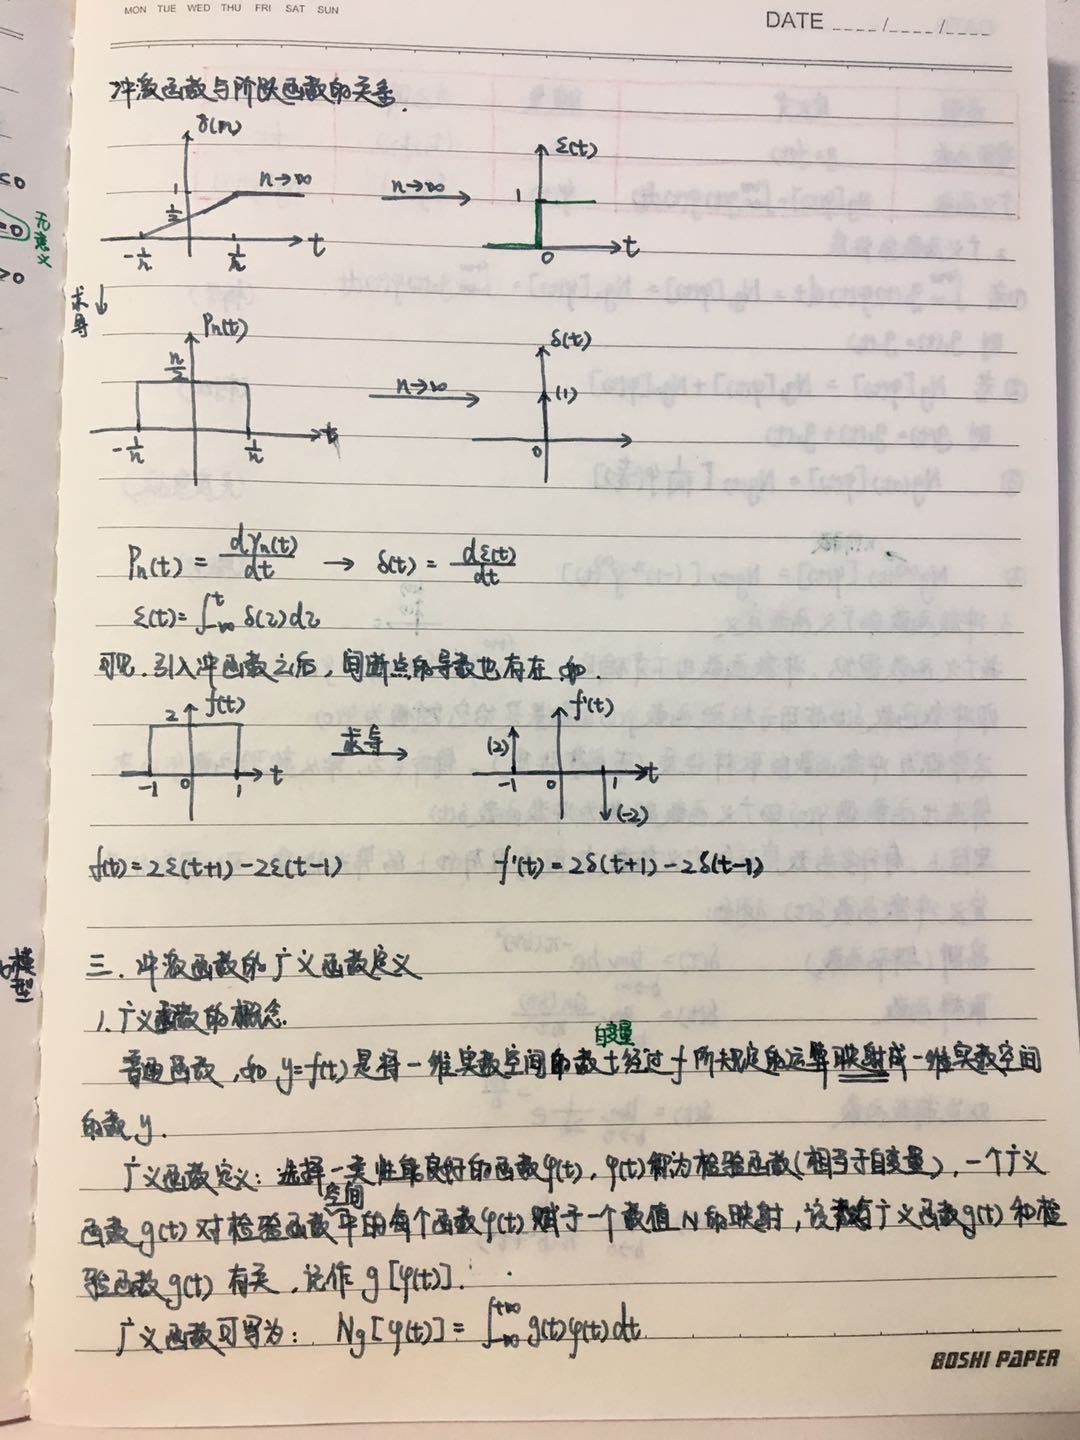 MON TUE WED THU FRI SAT SUN
DATE ____/____/____
冲激函数与阶跃函数的关系.
≤0
=0
≥0
无意义
γ(n)
1
1/2
n→∞
-1/n
1/n
t
n→∞
ε(t)
1
0
t
求导↓
Pn(t)
n/2
-1/n
1/n
t
n→∞
δ(t)
(1)
0
Pn(t) = dγn(t)/dt → δ(t) = dε(t)/dt
ε(t)=∫_{-∞}^{t} δ(τ)dτ
可见.引入冲函数之后,间断点的导数也存在 如.
2
f(t)
-1
0
1
t
求导
f'(t)
(2)
-1
0
1
t
(-2)
f(t)=2ε(t+1)-2ε(t-1)
f'(t)=2δ(t+1)-2δ(t-1)
模型
三.冲激函数的广义函数定义
1.广义函数的概念.
自变量
普通函数,如 y=f(t)是将一维实数空间的数t经过f所规定的运算映射成一维实数空间
的数y.
广义函数定义:选择一类性能良好的函数φ(t),φ(t)称为检验函数(相当于自变量),一个广义
空间
函数g(t)对检验函数中的每个函数φ(t)赋于一个数值N的映射,该数与广义函数g(t)和检
验函数g(t)有关,记作g[φ(t)].
广义函数可写为: Ng[φ(t)]=∫_{-∞}^{+∞} g(t)φ(t)dt
BOSHI PAPER